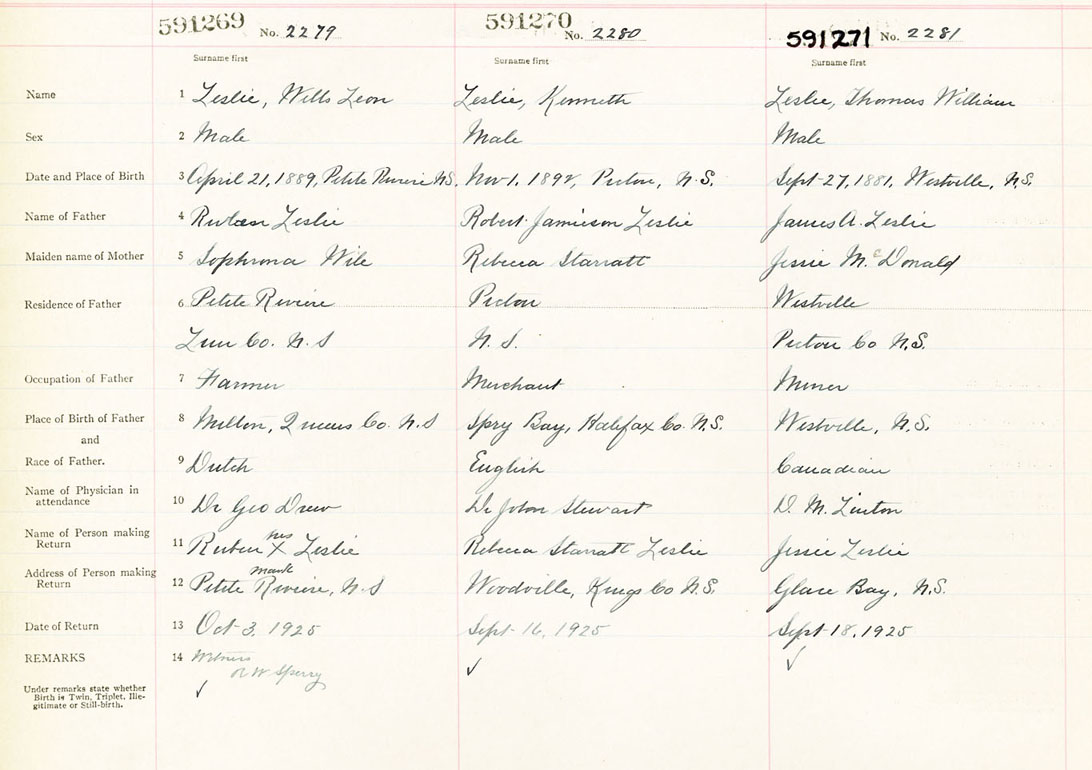 591269 No. 2279 591270 No. 2280 591271 No. 2281
Surname first Surname first Surname first
Name 1 Leslie, Wells Leon Leslie, Kenneth Leslie, Thomas William
Sex 2 Male Male Male
Date and Place of Birth 3 April 21, 1889, Petite Riviere N.S. Nov. 1, 1892, Pictou, N.S. Sept 27, 1881, Westville, N.S.
Name of Father 4 Leslie Robert Jamieson Leslie James A. Leslie
Maiden name of Mother 5 Sophrona Wile Rebecca Starratt Jessie McDonald
Residence of Father 6 Petite Riviere Pictou Westville
Lun Co. N.S N.S. Pictou Co N.S.
Occupation of Father 7 Farmer Merchant Miner
Place of Birth of Father 8 Milton, Queens Co. N.S Spry Bay, Halifax Co. N.S. Westville, N.S.
and
Race of Father. 9 Dutch English Canadian
Name of Physician in
attendance 10 Dr Geo Drew Dr John Stewart D. M. Linton
Name of Person making
Return 11 Ruben his X Leslie Rebecca Starratt Leslie Jessie Leslie
mark
Address of Person making
Return 12 Petite Riviere, N.S Woodville, Kings Co N.S. Glace Bay, N.S.
Date of Return 13 Oct 3, 1925 Sept 16, 1925 Sept 18, 1925
REMARKS 14 Witness
W Sperry
Under remarks state whether
Birth is Twin, Triplet, Ille-
gitimate or Still-birth.